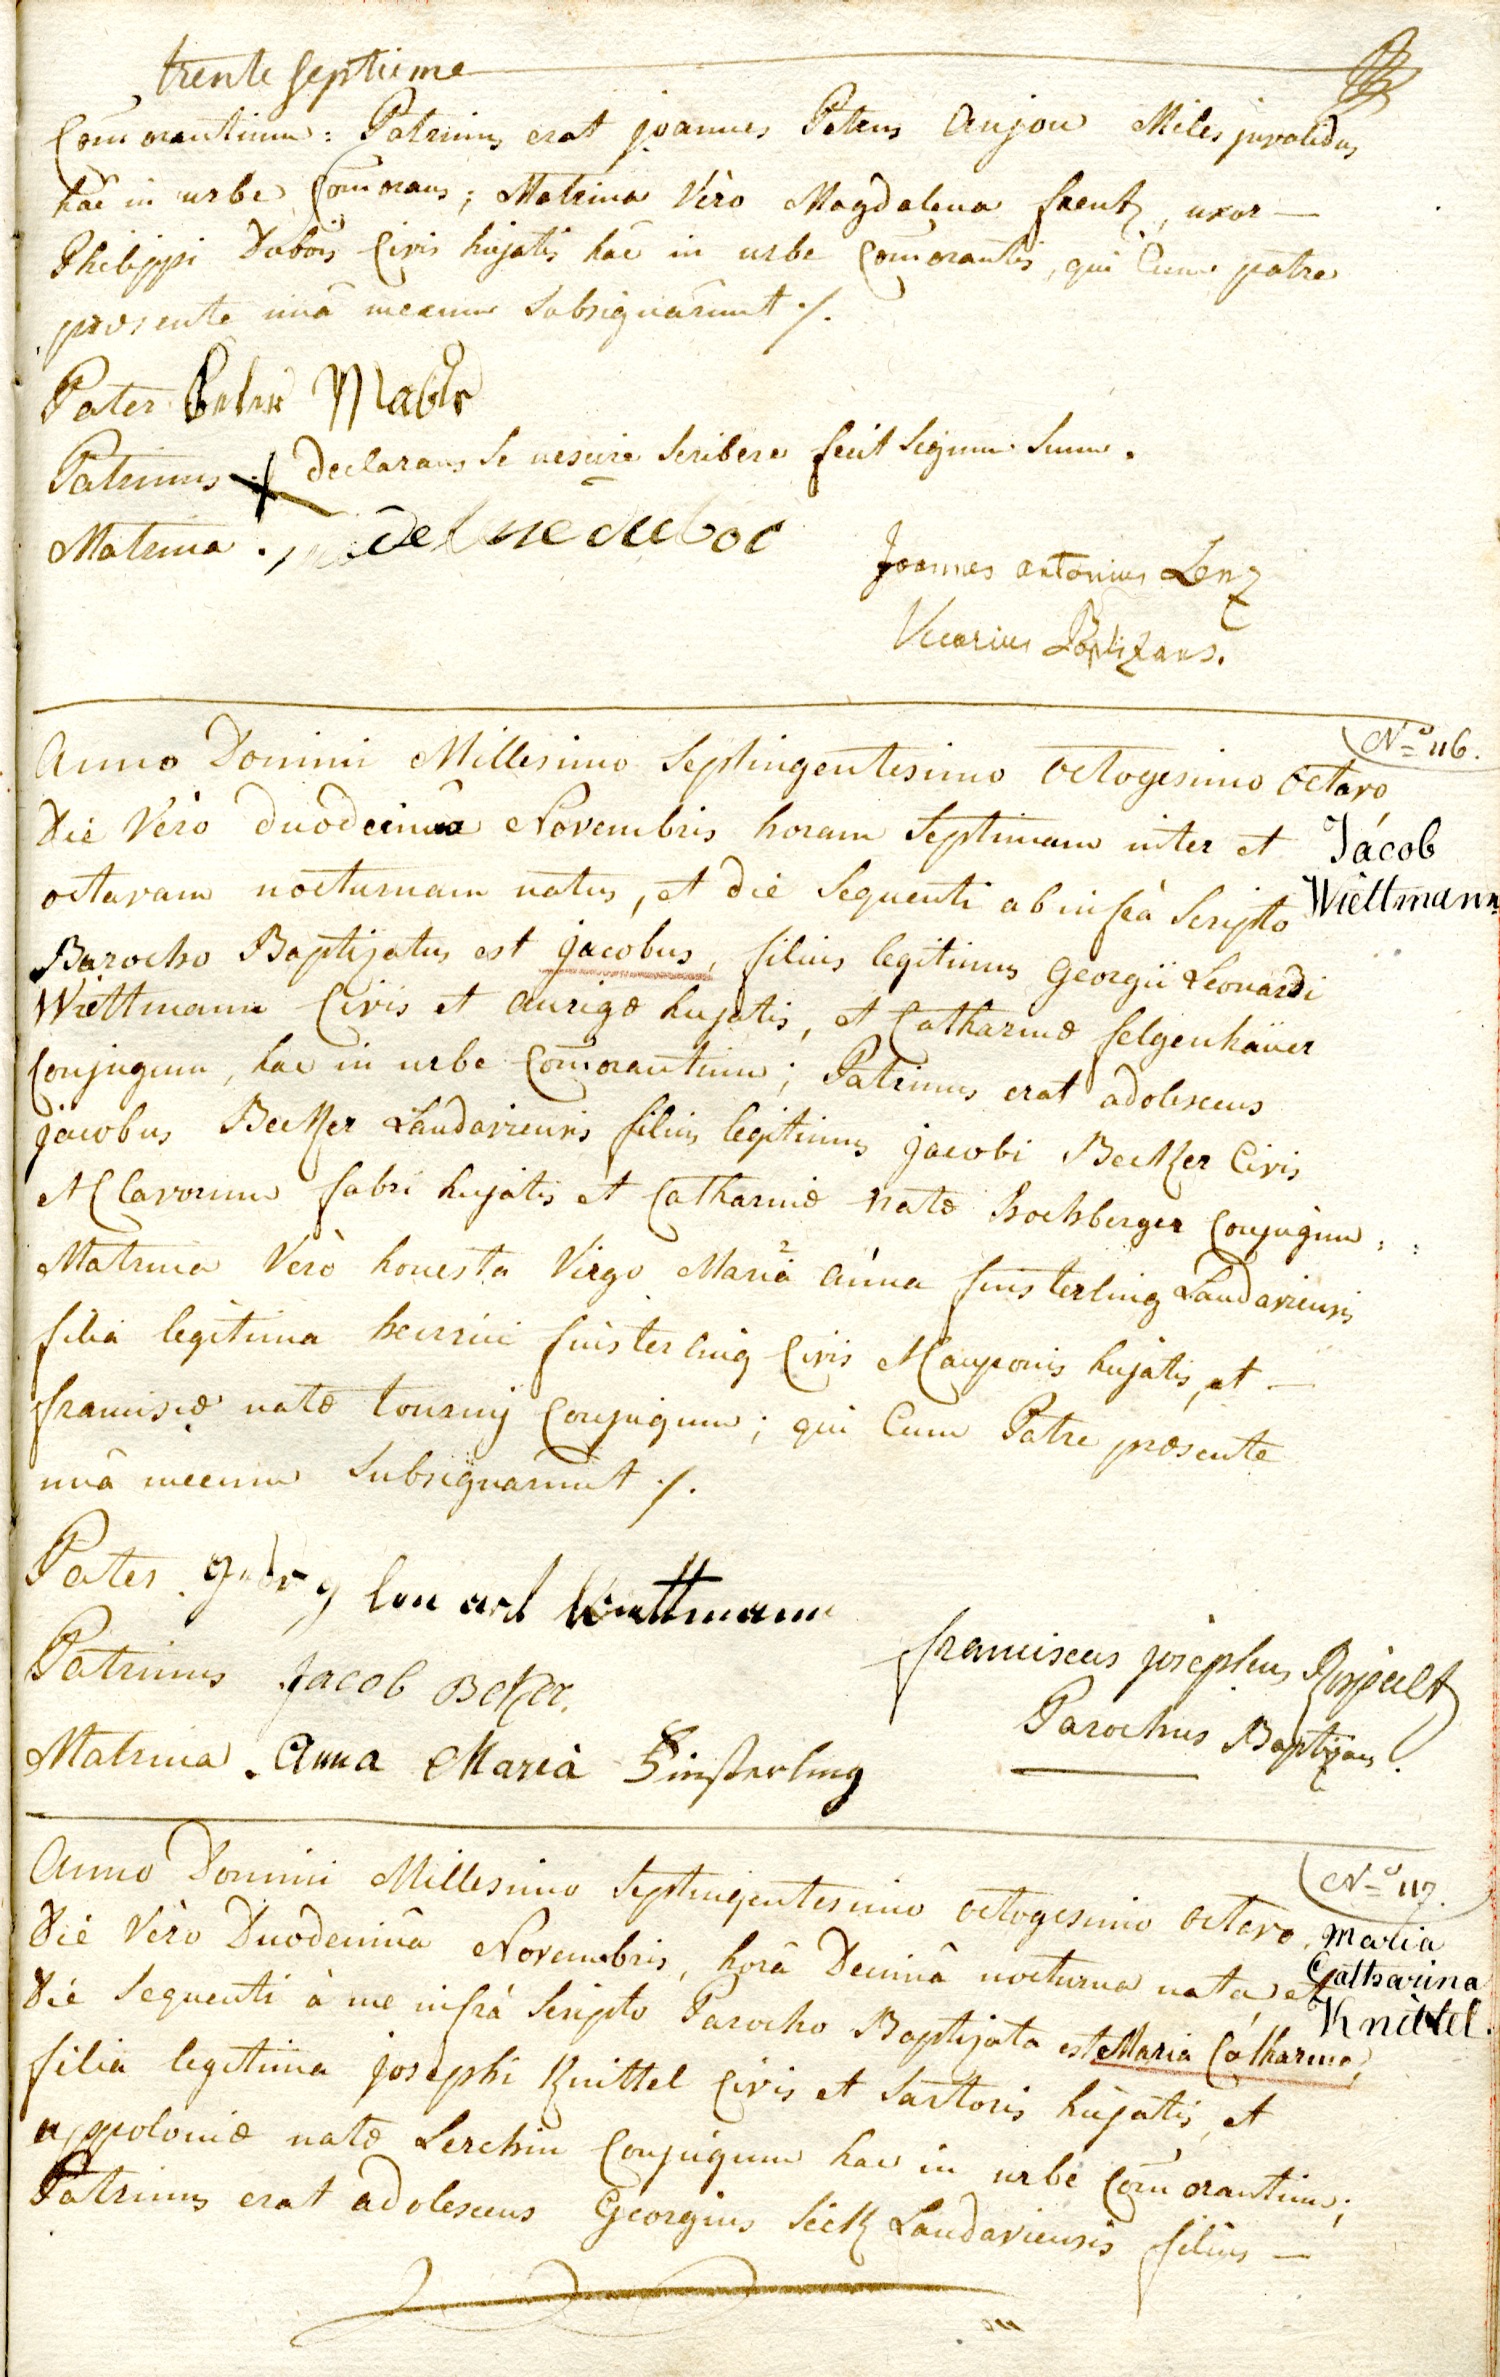 trente septieme
Com̄orantium: Patrinus erat joannes Petrus Anjou Miles invalidus
hâc in urbe Com̄orans; Matrina Vèro Magdalena frentz, uxor —
Philippi Dubois Civis hujatis hâc in urbe Com̄orantis, qui Cum patre
præsente unâ mecum Subsignârunt ./.
Pater Peter
Patrinus + Declarans Se nescire Scribere fecit Signum Suum.
Matrina .
Joannes antonius Lenz
Vicarius Baptizans.
Nº 116.
Anno Domini Millesimo Septingentesimo octogesimo octavo
Die Vèro duodecimâ Novembris horam Septimam inter et
octavam nocturnam natus, et die Sequenti ab infrà Scripto
Jacob
Wiettmann
Barocho Baptizatus est jacobus, filius legitimus Georgii Leonardi
Wiettmann Civis et aurigæ hujatis, et Catharinæ felgenhäuer
Conjugum, hac in urbe Com̄orantium; Patrinus erat adolescens
jacobus Becker Landaviensis filius legitimus jacobi Becker Civis
et Clavorum fabri hujatis et Catharinæ natæ hochberger Conjugum;
Matrina Verò honesta Virgo Maria anna finsterling Landaviensis
filia legitima henrici finsterling Civis et Cauponis hujatis, et —
franciscæ natæ tourny Conjugum; qui Cum Patre præsente
unâ mecum Subsignârunt ./.
Pater georg leonard Wiettmann
Patrinus Jacob Becker.
Matrina . Anna Maria Finsterling
franciscus josephus
Parochus Baptizans.
Nº 117.
Anno Domini Millesimo Septingentesimo octogesimo octavo,
Die Vèro Duodecimâ Novembris, horâ Decimâ nocturna nata, et
Die Sequenti à me infrà Scripto Parocho Baptizata est Maria Catharina,
Maria
Catharina
Knittel.
filia legitima josephi Knittel Civis et Sartoris hujatis, et
appoloniæ natæ Lerchin Conjugum hac in urbe Com̄orantium;
Patrinus erat adolescens Georgius Seck Landaviensis filius —